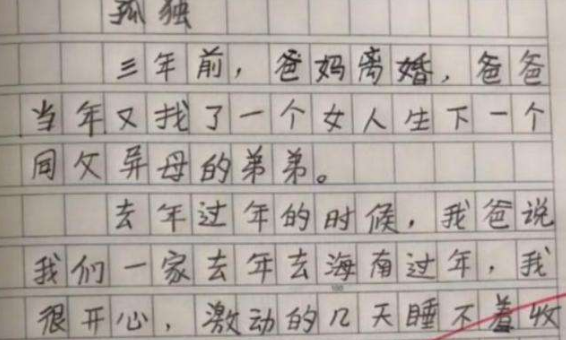 孤独
三年前，爸妈离婚，爸爸
当年又找了一个女人生下一个
同父异母的弟弟。
去年过年的时候，我爸说
我们一家去年去海南过年，我
很开心，激动的几天睡不着收
100